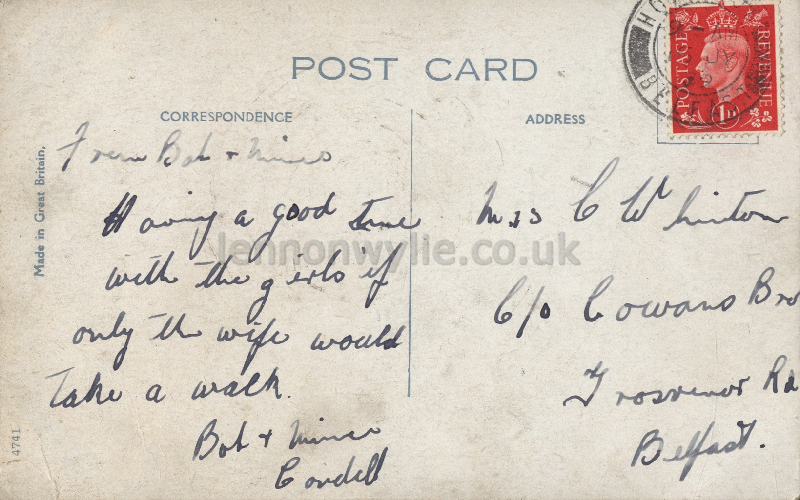 POST CARD
CORRESPONDENCE
ADDRESS
Made in Great Britain.
4741
From Bob +
Having a good time
with the girls if
only the wife would
take a walk.
Bob +
Cordell
Mrs C Whinton
C/o Cowans Bro
Grosvenor Rd
Belfast.
POSTAGE
REVENUE
1D
BELFAST
lennonwylie.co.uk